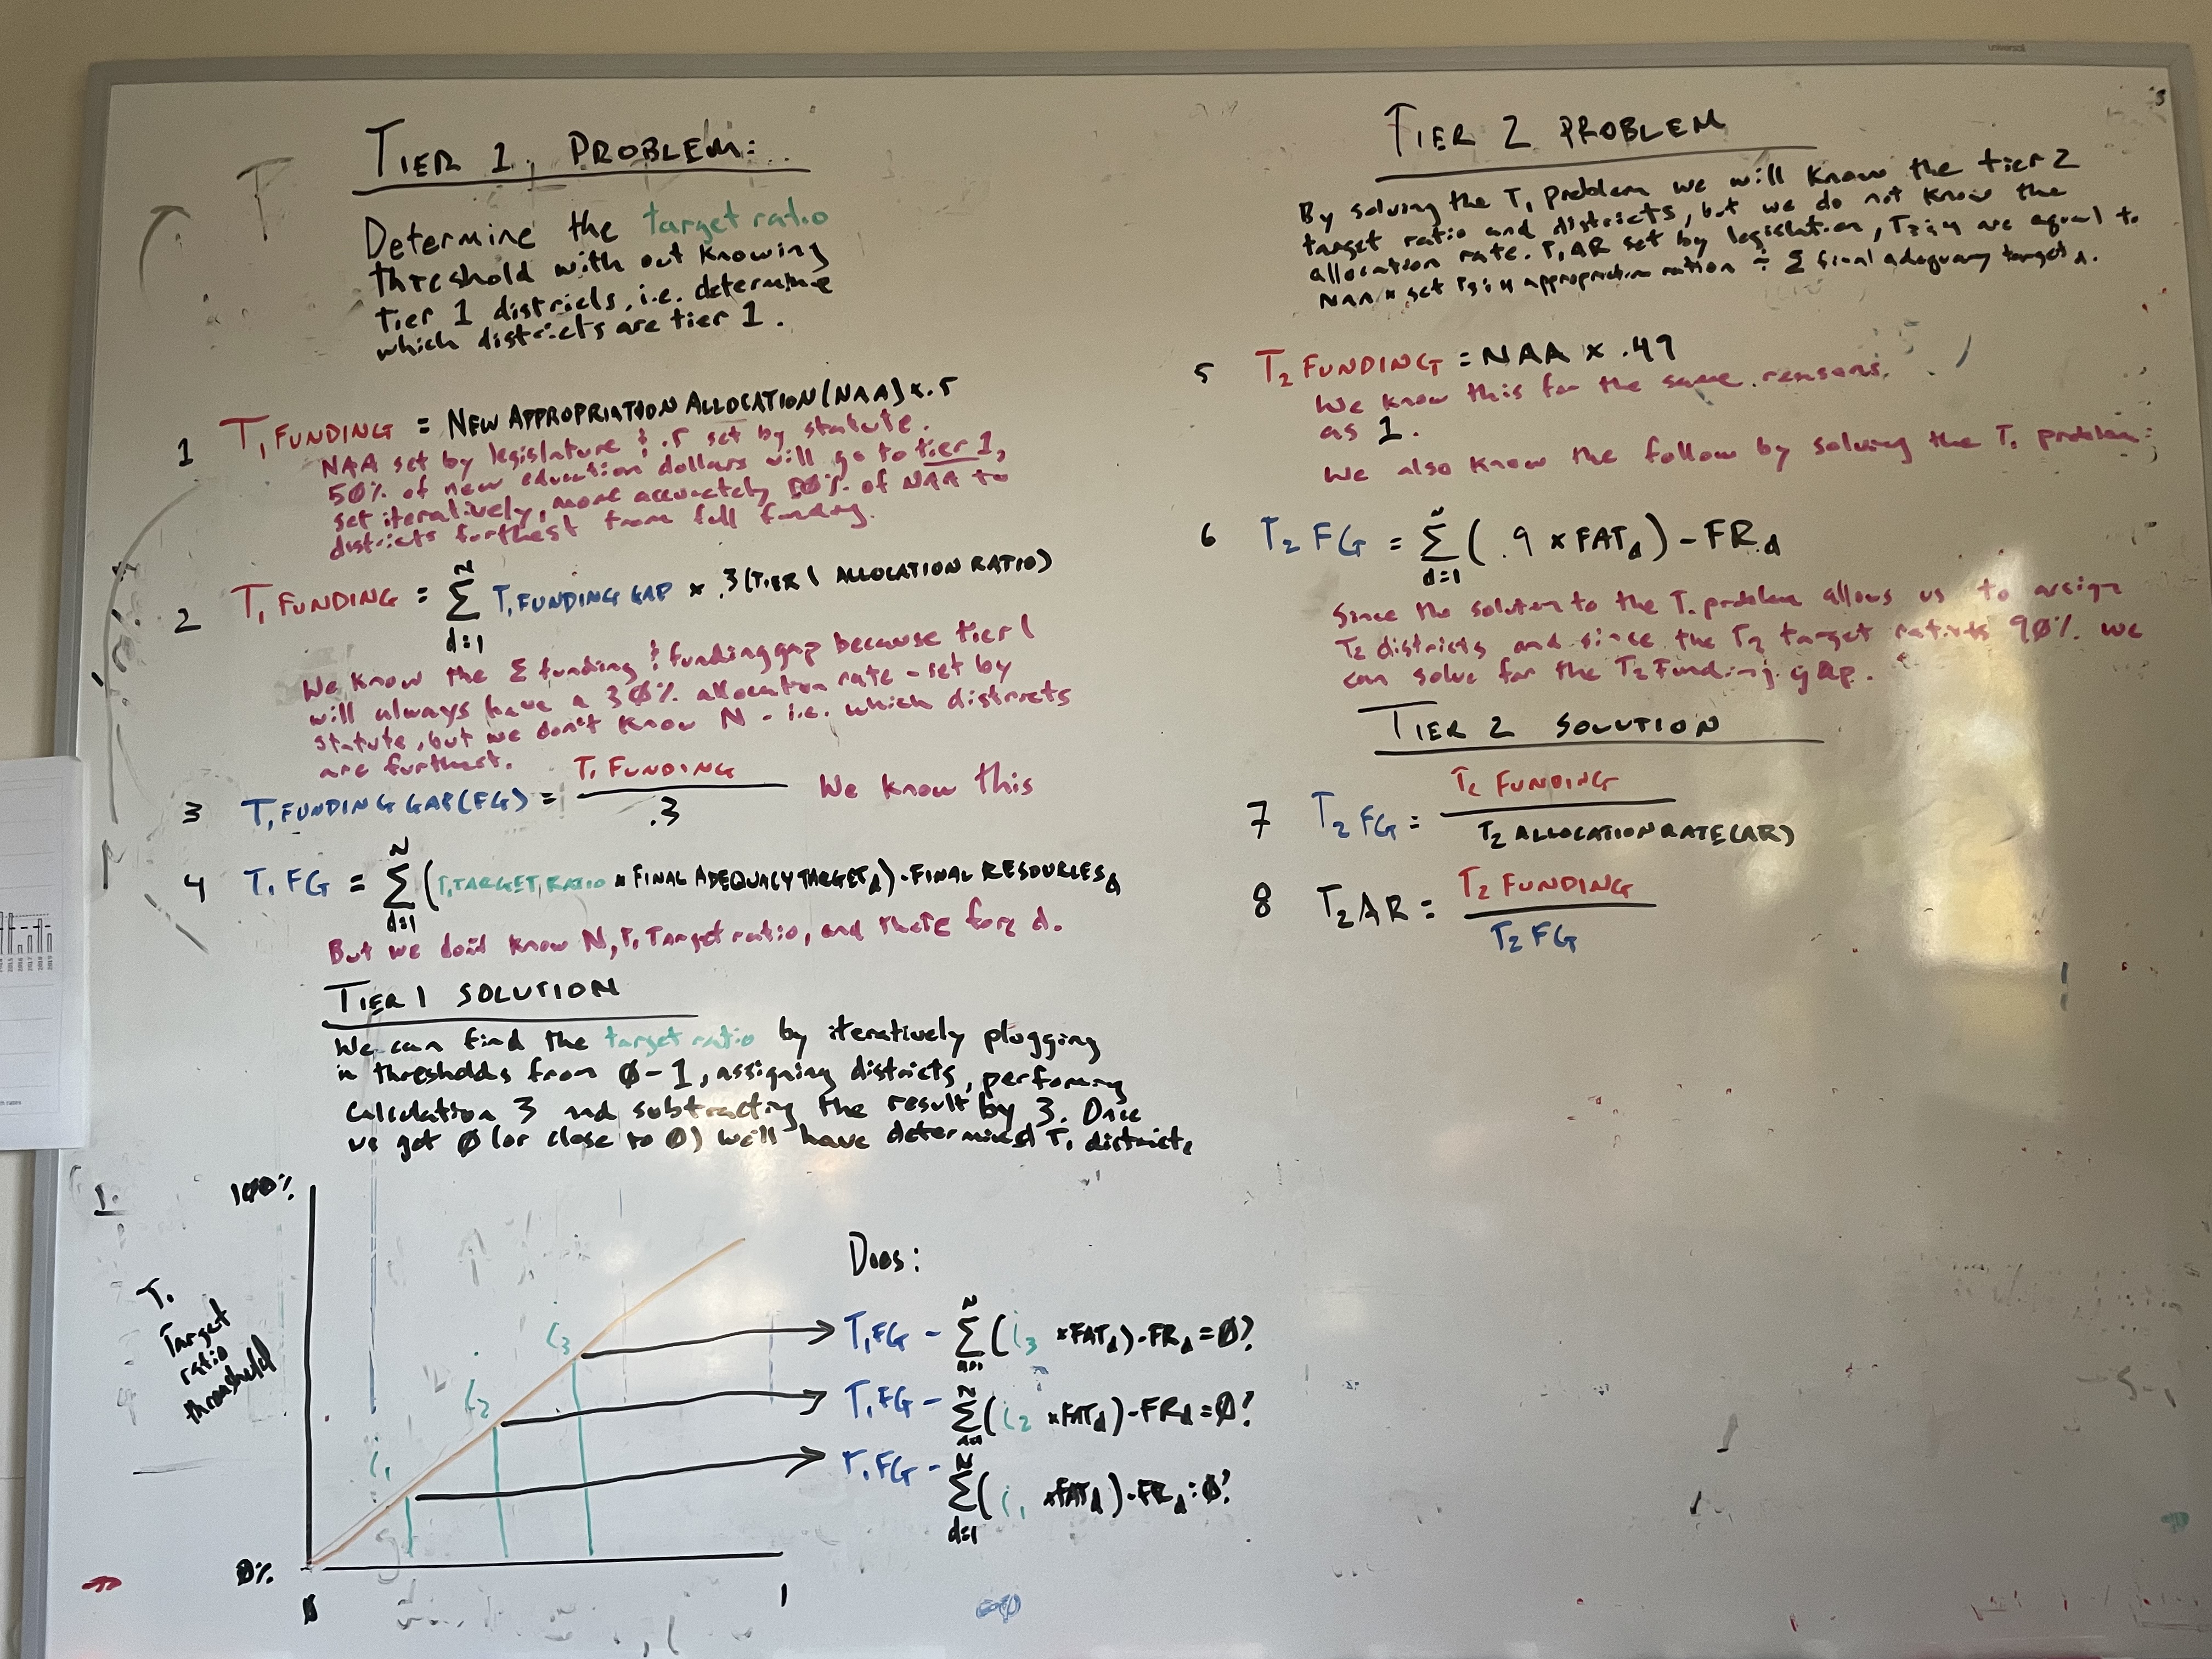 universal
TIER 1 PROBLEM:
Determine the target ratio
threshold with out knowing
tier 1 districts, i.e. determine
which districts are tier 1.
1 T₁ FUNDING = NEW APPROPRIATION ALLOCATION (NAA) × .5
NAA set by legislature & .5 set by statute.
50% of new education dollars will go to tier 1,
set iteratively, more accurately 50% of NAA to
districts furthest from full funding.
2 T₁ FUNDING = Σ T₁ FUNDING GAP × .3 (TIER 1 ALLOCATION RATIO)
N
d=1
We know the Σ funding & funding gap because tier 1
will always have a 30% allocation rate - set by
statute, but we don't know N - i.e. which districts
are furthest.
3 T₁ FUNDING GAP (FG) = T₁ FUNDING / .3 We know this
4 T₁ FG = Σ (T₁ TARGET RATIO × FINAL ADEQUACY TARGET d) - FINAL RESOURCES d
N
d=1
But we don't know N, T₁ Target ratio, and there for d.
TIER 1 SOLUTION
We can find the target ratio by iteratively plugging
in thresholds from 0-1, assigning districts, performing
calculation 3 and subtracting the result by 3. Once
we get 0 (or close to 0) we'll have determined T₁ districts
100%
T₁
Target
ratio
threshold
0%
0
1
i₃
i₂
i₁
Does:
T₁FG - Σ (i₃ × FAT d) - FR d = 0?
T₁FG - Σ (i₂ × FAT d) - FR d = 0?
T₁FG - Σ (i₁ × FAT d) - FR d = 0?
N
d=1
TIER 2 PROBLEM
By solving the T₁ problem we will know the tier 2
target ratio and districts, but we do not know the
allocation rate. T₁ AR set by legislation, T3 & 4 are equal to
NAA × set T3 & 4 appropriation ÷ Σ final adequacy target d.
5 T₂ FUNDING = NAA × .49
We know this for the same reasons
as 1.
We also know the follow by solving the T₁ problem:
6 T₂ FG = Σ (.9 × FAT d) - FR d
d=1
Since the solution to the T₁ problem allows us to assign
T₂ districts and since the T₂ target ratio is 90% we
can solve for the T₂ Funding gap.
TIER 2 SOLUTION
7 T₂ FG = T₂ FUNDING / T₂ ALLOCATION RATE (AR)
8 T₂ AR = T₂ FUNDING / T₂ FG